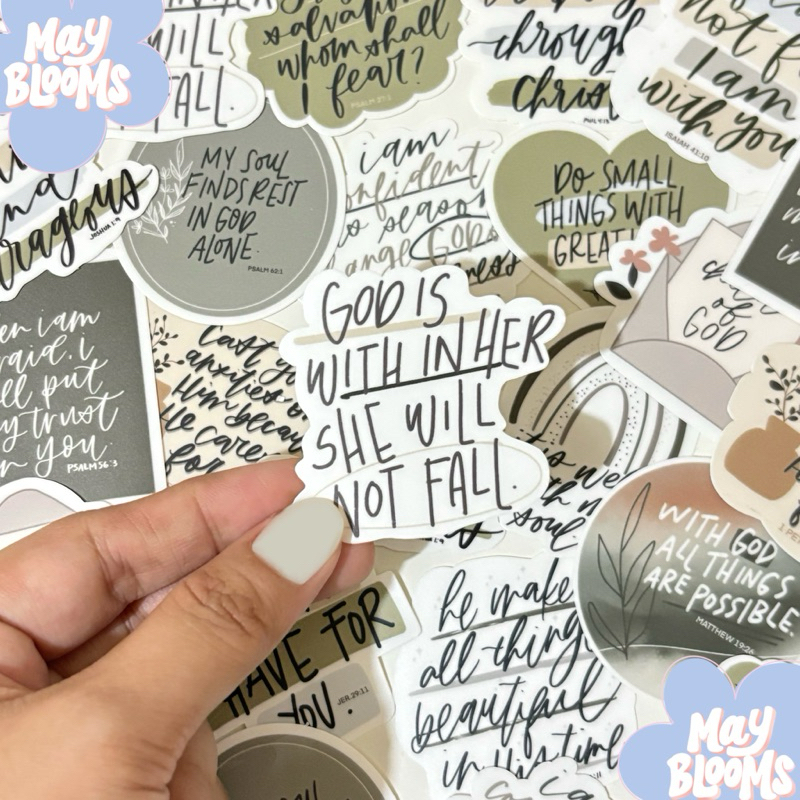 May
BLOOMS
WILL
FALL.
salvation
whom shall
I fear?
PSALM 27:1
through
Christ
PHIL 4:13
not
I am
with you
ISAIAH 41:10
and
JOSHUA 1:9
MY SOUL
FINDS REST
IN GOD
ALONE.
PSALM 62:1
i am
GOD'S
DO SMALL
THINGS WITH
GREAT
of
GOD
i am
i
put
trust
you.
PSALM 56:3
Cast
Him
He
for
GOD IS
WITH IN HER
SHE WILL
NOT FALL.
soul
WITH GOD
ALL THINGS
ARE POSSIBLE.
MATTHEW 19:26
HAVE FOR
YOU.
JER. 29:11
he
all things
beautiful
in his time
May
BLOOMS